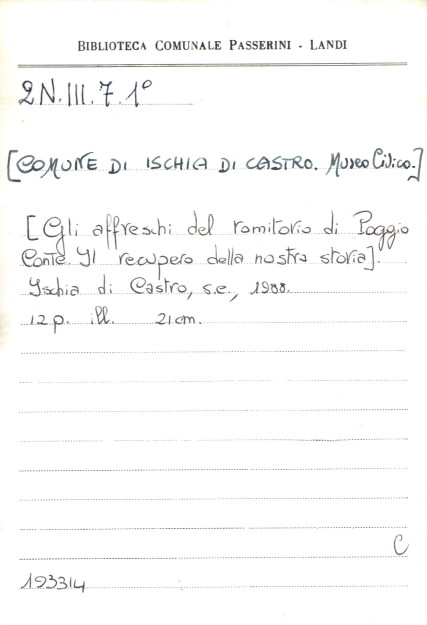 BIBLIOTECA COMUNALE PASSERINI - LANDI
2N.III.7.1°
[COMUNE DI ISCHIA DI CASTRO. Museo Civico.]
[Gli affreschi del romitorio di Poggio
Conte. Il recupero della nostra storia].
Ischia di Castro, s.e., 1988.
12 p. ill. 21 cm.
C
193314